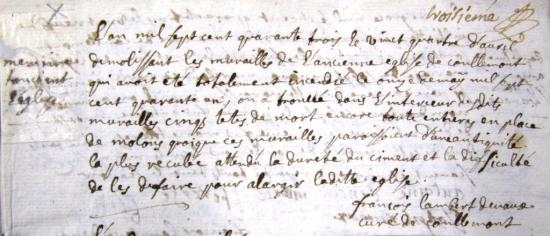 troisième
L'an mil sept cent quarante trois le vint quatre d'avril
demolissent les murailles de l'ancienne eglise de coullemont
qui avoit été totalement incendiée le onze de may mil sept
cent quarante un, on a trouvée dans l'interieur desdits
murailles cinq tetes de mort encore toute entieres en place
de molons quoique ces murailles paroissoient d'une antiquité
la plus reculée attendu la dureté du ciment et la difficulté
de les defaire pour alargir laditte eglise.
memoire
touchant
l'eglise
françois lambert
curé de coullemont